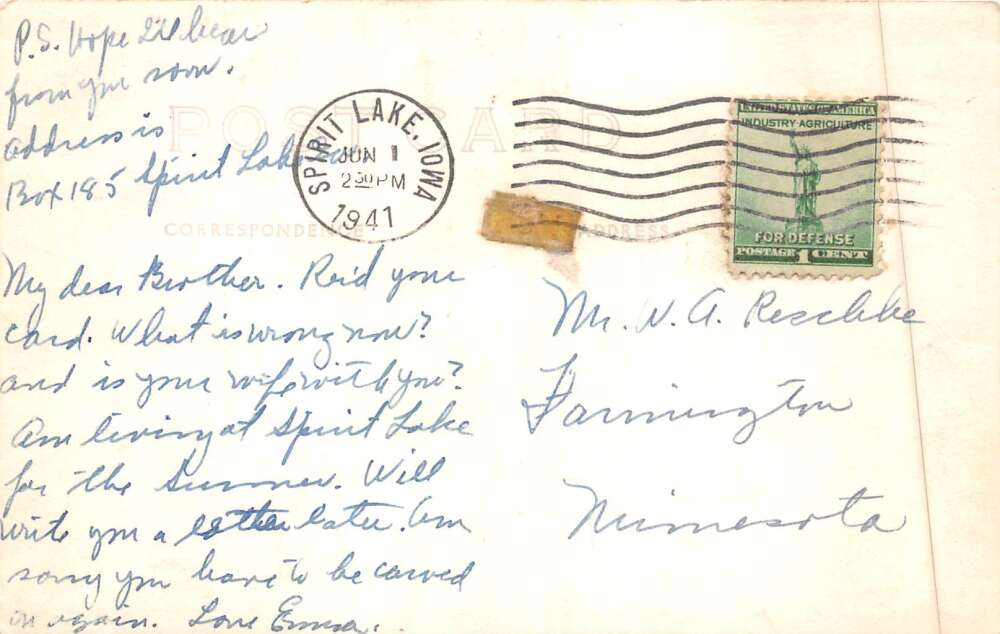 P.S. Hope I'll hear
from you soon.
address is
Box 185 Spirit Lake
POST CARD
SPIRIT LAKE, IOWA
JUN 1
2 30 PM
1941
UNITED STATES OF AMERICA
INDUSTRY AGRICULTURE
FOR DEFENSE
POSTAGE 1 CENT
CORRESPONDENCE
ADDRESS
My dear Brother. Rec'd your
card. What is wrong now?
and is your wife with you?
Am living at Spirit Lake
for the Summer. Will
write you a letter later. Am
sorry you have to be carved
on again. Love Emma.
Mr. W. A. Reschke
Farmington
Minnesota